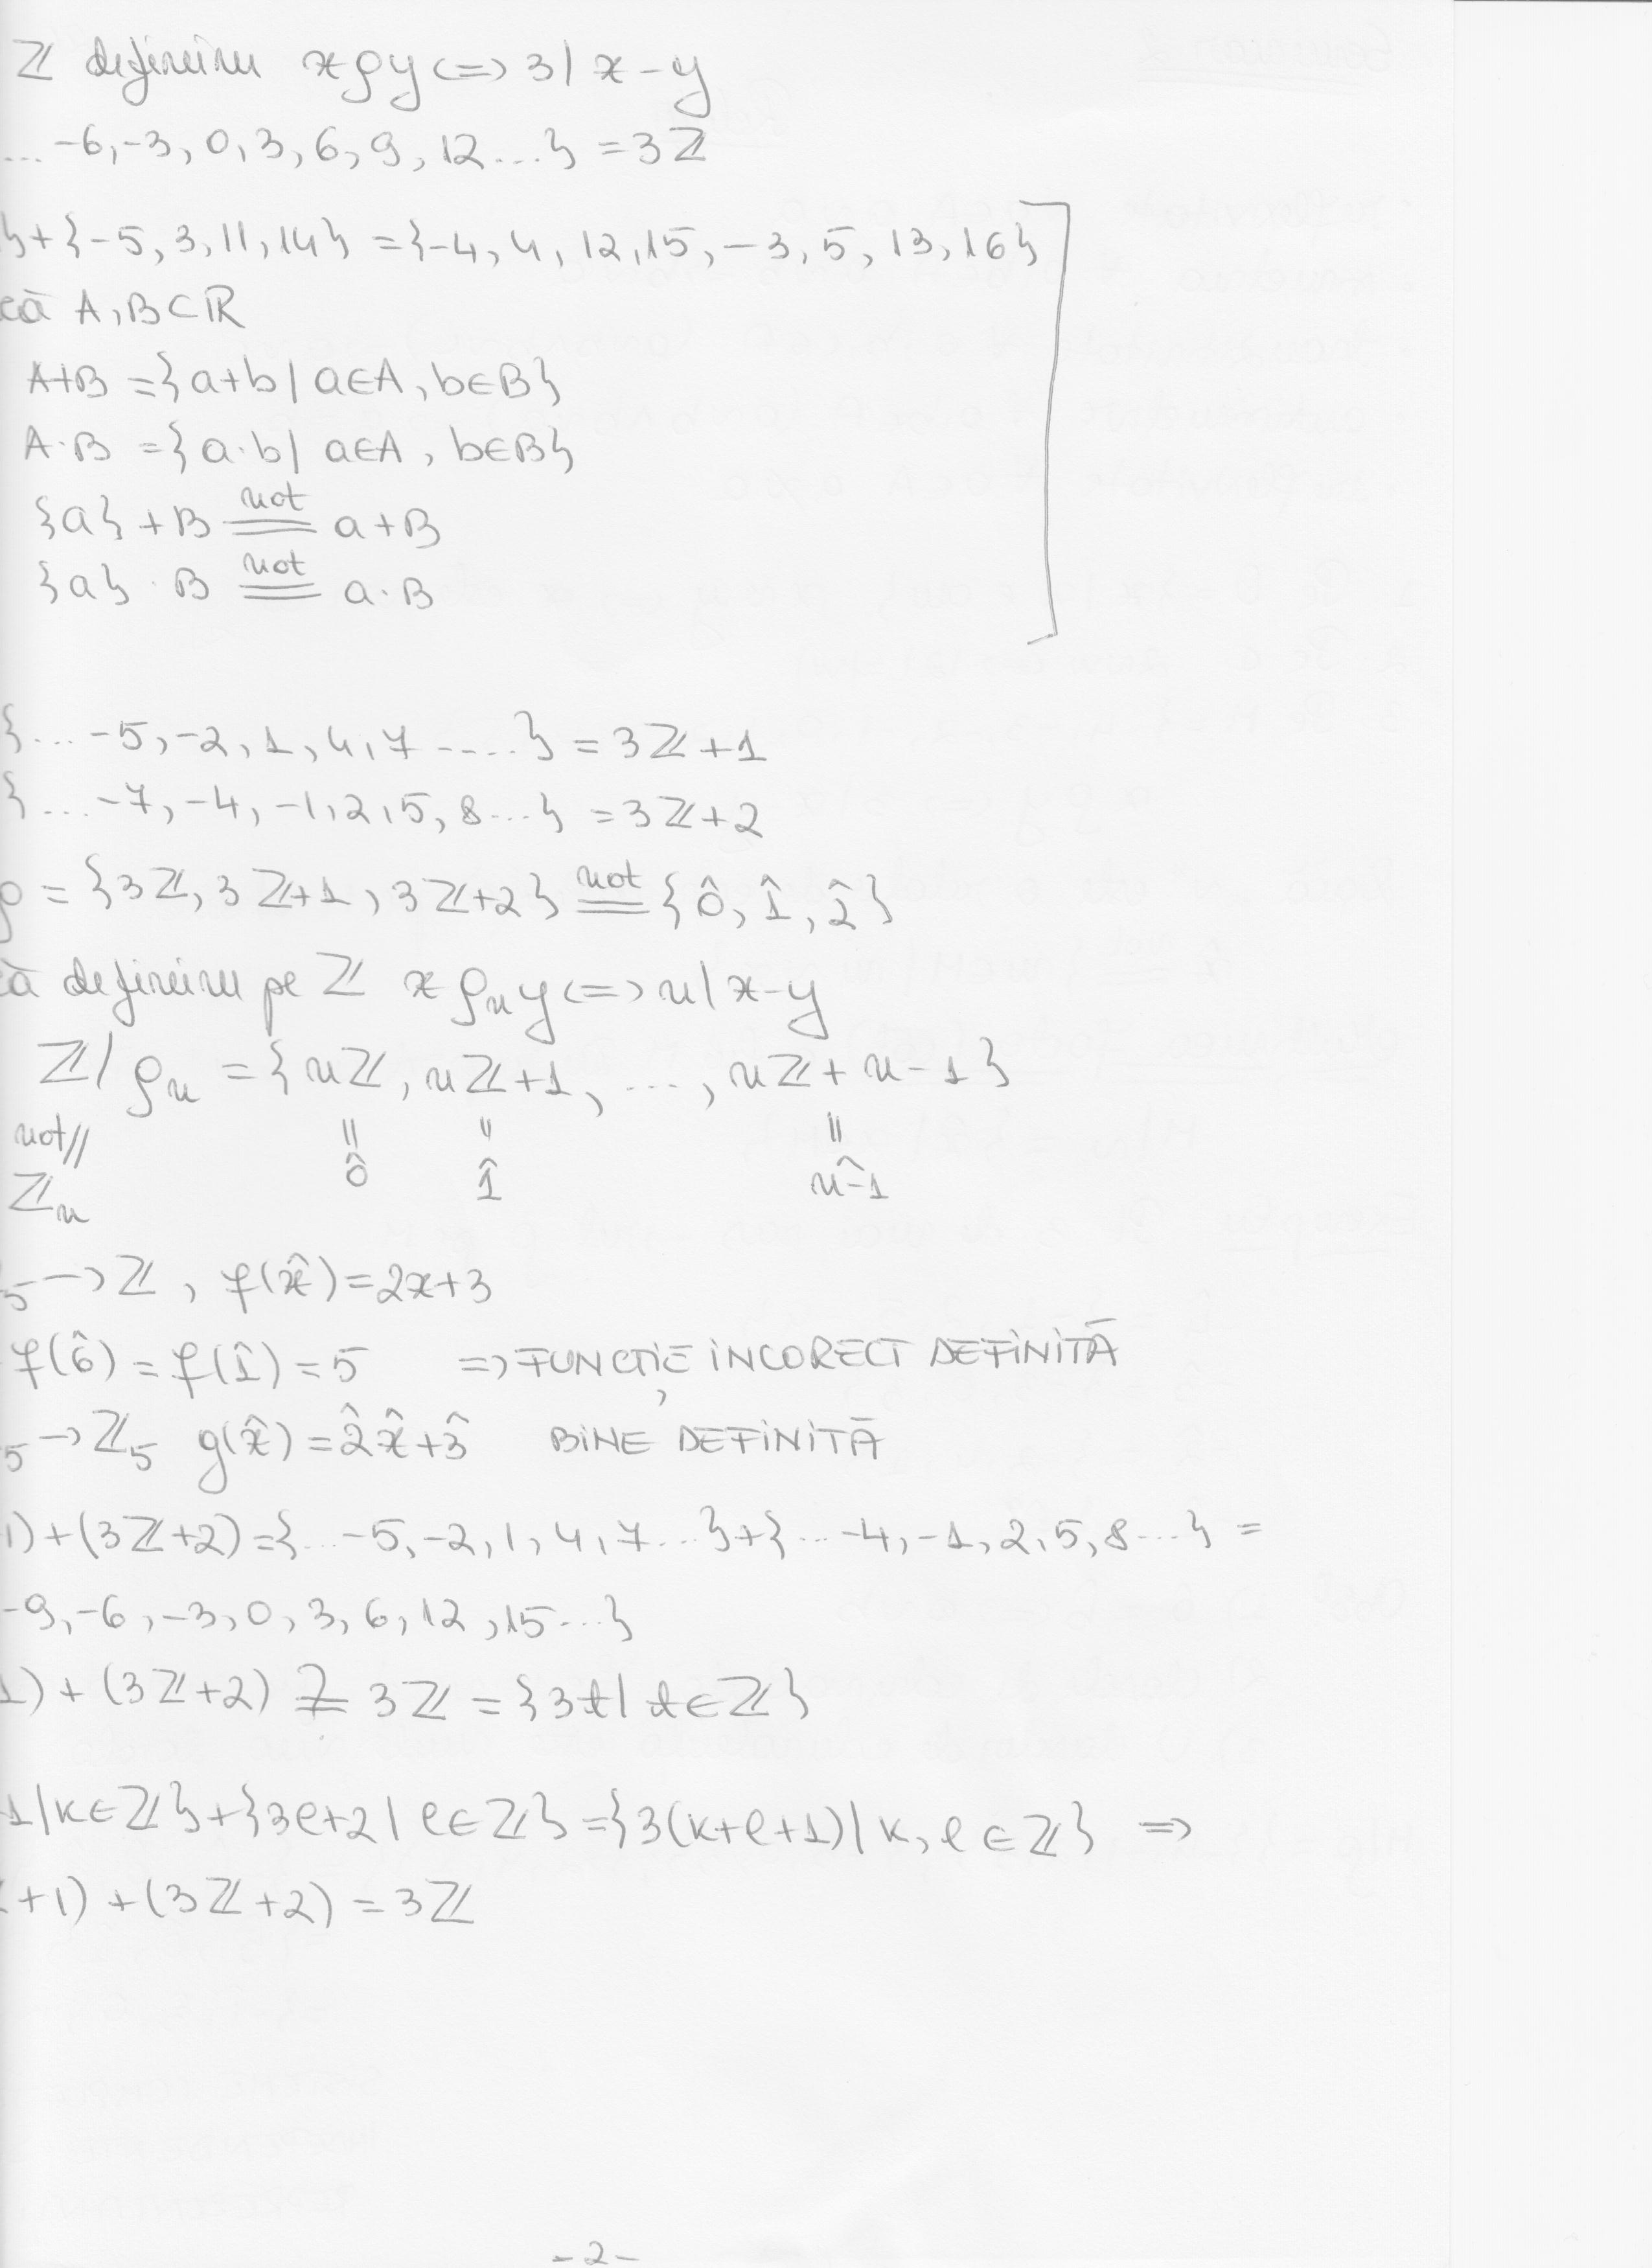 ℤ definim xρy <=> 3 | x-y
... -6, -3, 0, 3, 6, 9, 12 ...} = 3ℤ
}+{-5, 3, 11, 14} = {-4, 4, 12, 15, -3, 5, 13, 16}
că A, B ⊂ ℝ
A+B = {a+b | a∈A, b∈B}
A·B = {a·b | a∈A, b∈B}
{a} + B not= a+B
{a} · B not= a·B
{... -5, -2, 1, 4, 7 ....} = 3ℤ+1
{... -7, -4, -1, 2, 5, 8 ...} = 3ℤ+2
ρ = {3ℤ, 3ℤ+1, 3ℤ+2} not= {0̂, 1̂, 2̂}
că definim pe ℤ xρₙy <=> n | x-y
ℤ/ρₙ = {nℤ, nℤ+1, ..., nℤ+n-1}
not // || || ||
ℤₙ 0̂ 1̂ n-1̂
5 -> ℤ, f(x̂) = 2x+3
f(6̂) = f(1̂) = 5 => FUNCȚIE INCORECT DEFINITĂ
5 -> ℤ₅ g(x̂) = 2̂x̂+3̂ BINE DEFINITĂ
1)+(3ℤ+2) = {... -5, -2, 1, 4, 7 ...}+{... -4, -1, 2, 5, 8 ...} =
-9, -6, -3, 0, 3, 6, 12, 15 ...}
1) + (3ℤ+2) ?= 3ℤ = {3t | t∈ℤ}
1 | k∈ℤ}+{3l+2 | l∈ℤ} = {3(k+l+1) | k, l∈ℤ} =>
+1) + (3ℤ+2) = 3ℤ
-2-